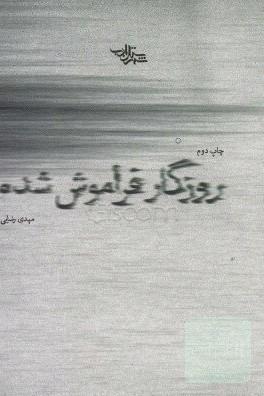 شهرستان ادب
چاپ دوم
روزگار فراموش شده
مهدی رضایی